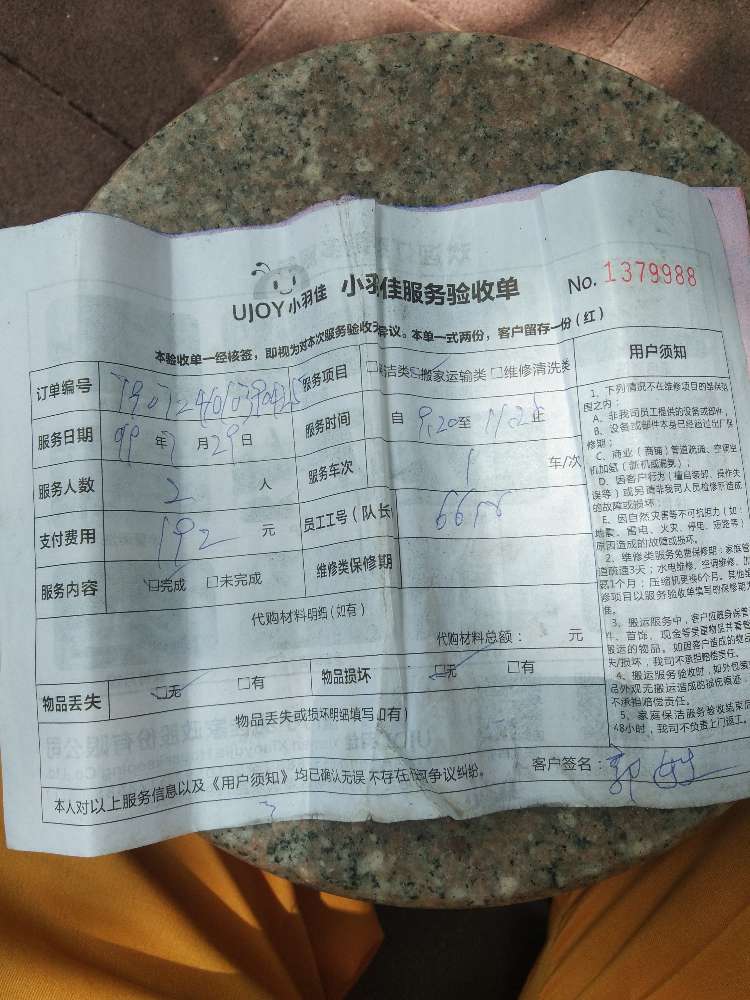 UJOY小羽佳 小羽佳服务验收单 No. 1379988
本验收单一经核签，即视为对本次服务验收无异议。本单一式两份，客户留存一份（红）
订单编号 服务项目 □保洁类 □搬家运输类 □维修清洗类
服务日期 年 7 月 29 日 服务时间 自 9:20 至 11:20 止
服务人数 2 人 服务车次 1 车/次
支付费用 192 元 员工工号（队长）
服务内容 □完成 □未完成 维修类保修期
代购材料明细（如有）
代购材料总额： 元
物品丢失 □无 □有 物品损坏 □无 □有
物品丢失或损坏明细填写（如有）
本人对以上服务信息以及《用户须知》均已确认无误 不存在任何争议纠纷。 客户签名：
用户须知
1、下列情况不在维修项目的
围之内：
A、非我司员工提供的设备或部件，
B、设备或部件本身已经超过出厂保
修期；
C、商业（商铺）管道疏通、空调
机加氨（新机或漏氨）；
D、因客户行为（擅自装卸、操作失
误等）或另请非我司人员检修所造成
的故障或损坏；
E、因自然灾害等不可抗拒力（如：
地震、雷电、火灾、停电、短路等）
原因造成的故障或损坏。
2、维修类服务免费保修期：家庭管
道疏通3天；水电维修、空调维修、加
氨1个月；压缩机更换6个月。其他维
修项目以服务验收单填写的保修期为
准。
3、搬运服务中，客户应随身保管
件、首饰、现金等贵重物品并看管
搬运的物品。如因客户造成的物品
失/损坏，我司不承担赔偿责任。
4、搬运服务验收时，如外包装
品外观无搬运造成的损伤痕迹，
不承担赔偿责任。
5、家庭保洁服务验收结束后
48小时，我司不负责上门返工。